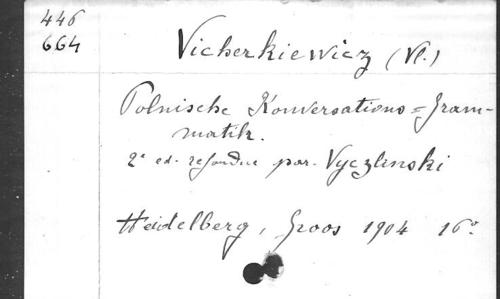 446
664
Vicherkiewicz (Vl.)
Polnische Konversations=Gram-
matik.
2e ed. refondue par. Vyczlinski
Heidelberg, Groos 1904 16o.